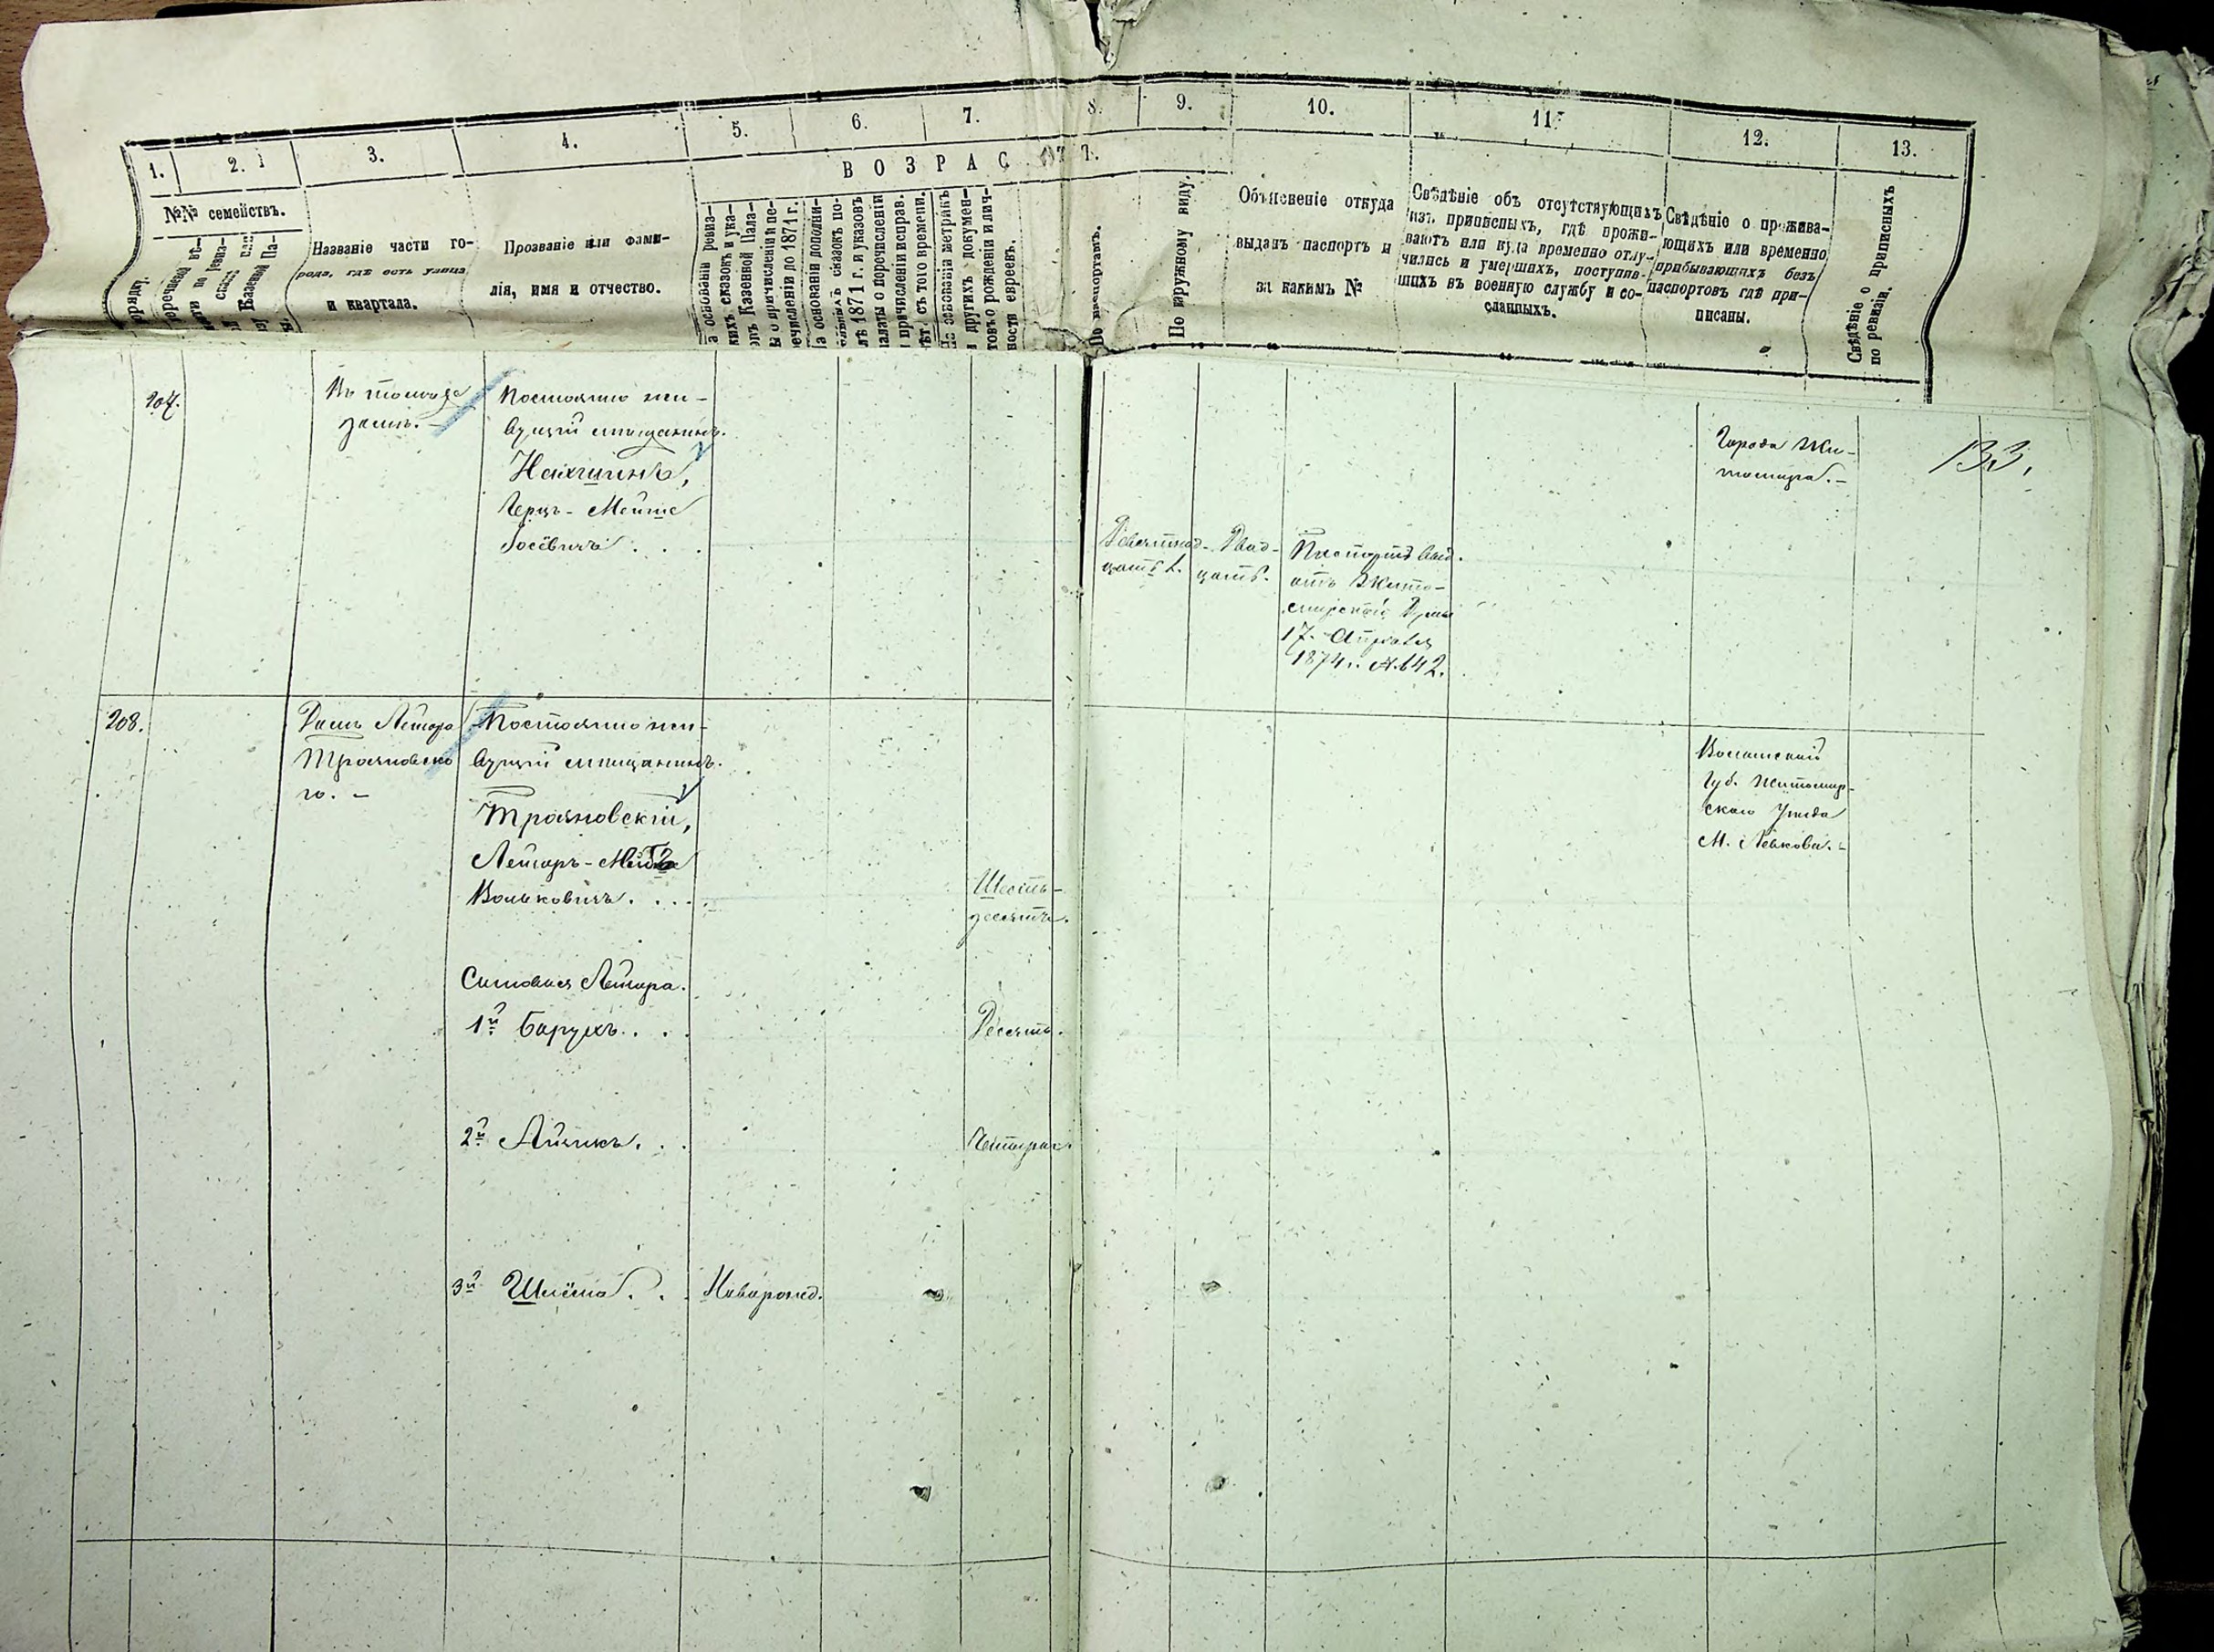 1.
2.
3.
4.
5.
6.
7.
8.
9.
10.
11.
12.
13.
ВОЗРАСТ
№№ семействъ.
Названіе части го-
рода, гдѣ есть улица
и квартала.
Прозваніе или фами-
лія, имя и отчество.
По паспортамъ.
По наружному виду.
Объясненіе откуда
выданъ паспортъ и
за какимъ №
Свѣдѣніе объ отсутствующихъ
изъ приписныхъ, гдѣ прожи-
ваютъ или куда временно отлу-
чились и умершихъ, поступив-
шихъ въ военную службу и со-
сланныхъ.
Свѣдѣніе о прожива-
ющихъ или временно
прибывающихъ безъ
паспортовъ гдѣ при-
писаны.
Свѣдѣніе о приписныхъ
по ревизіи.
207.
Въ томъ же
домѣ. –
Постоянно жи-
вущій мѣщанинъ.
Герцъ-
Девятнад-
цать
Двад-
цать.
Паспортъ выд.
отъ Жито-
мирской Думы
17 Апрѣля
1874 г. №. 642.
Города Жи-
томира. –
133.
208.
Домъ Лейзора
Трояновска
го. –
Постоянно жи-
вущій мѣщанинъ.
Трояновскій,
Лейзоръ-
Вольковичъ. . . .
Шесть-
десятъ.
Волынской
Губ. Житомир-
скаго Уѣзда
М. Левкова. –
Сыновья Лейзора.
1й Барухъ. . .
Десять.
2й Айзикъ. . .
Четыре.
3й Шлёма. . .
Новорожд.